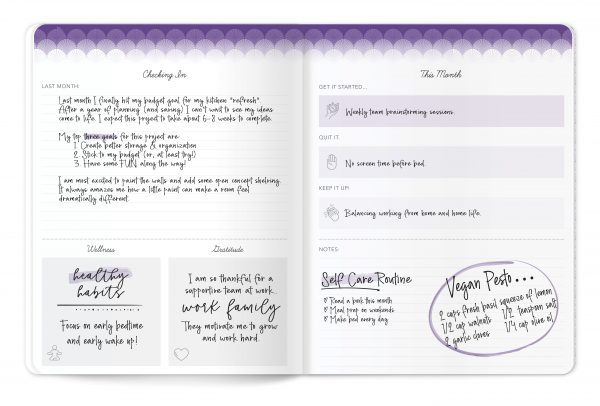 Checking In
LAST MONTH:
Last month I finally hit my budget goal for my kitchen "refresh".
After a year of planning (and saving) I can't wait to see my ideas
come to life. I expect this project to take about 6-8 weeks to complete.
My top three goals for this project are:
1. Create better storage & organization
2. Stick to my budget (or, at least try!)
3. Have some FUN along the way!
I am most excited to paint the walls and add some open concept shelving.
It always amazes me how a little paint can make a room feel
dramatically different.
Wellness
healthy
habits
Focus on early bedtime
and early wake up!
Gratitude
I am so thankful for a
supportive team at work...
work family
They motivate me to grow
and work hard.
This Month
GET IT STARTED...
Weekly team brainstorming sessions.
QUIT IT.
No screen time before bed.
KEEP IT UP!
Balancing working from home and home life.
NOTES:
Self Care Routine
Read a book this month
Meal prep on weekends
Make bed every day
Vegan Pesto...
2 cups fresh basil squeeze of lemon
1/2 cup walnuts 1/2 teaspoon salt
2 garlic cloves 1/4 cup olive oil